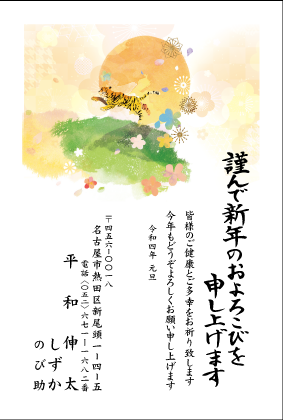 謹んで新年のおよろこびを
申し上げます
皆様のご健康とご多幸をお祈り致します
今年もどうぞよろしくお願い申し上げます
令和四年 元旦
〒四五六-〇〇一八
名古屋市熱田区新尾頭一-四-五
電話(〇五二)六七一-一六八二番
平和 伸太
しずか
のび助